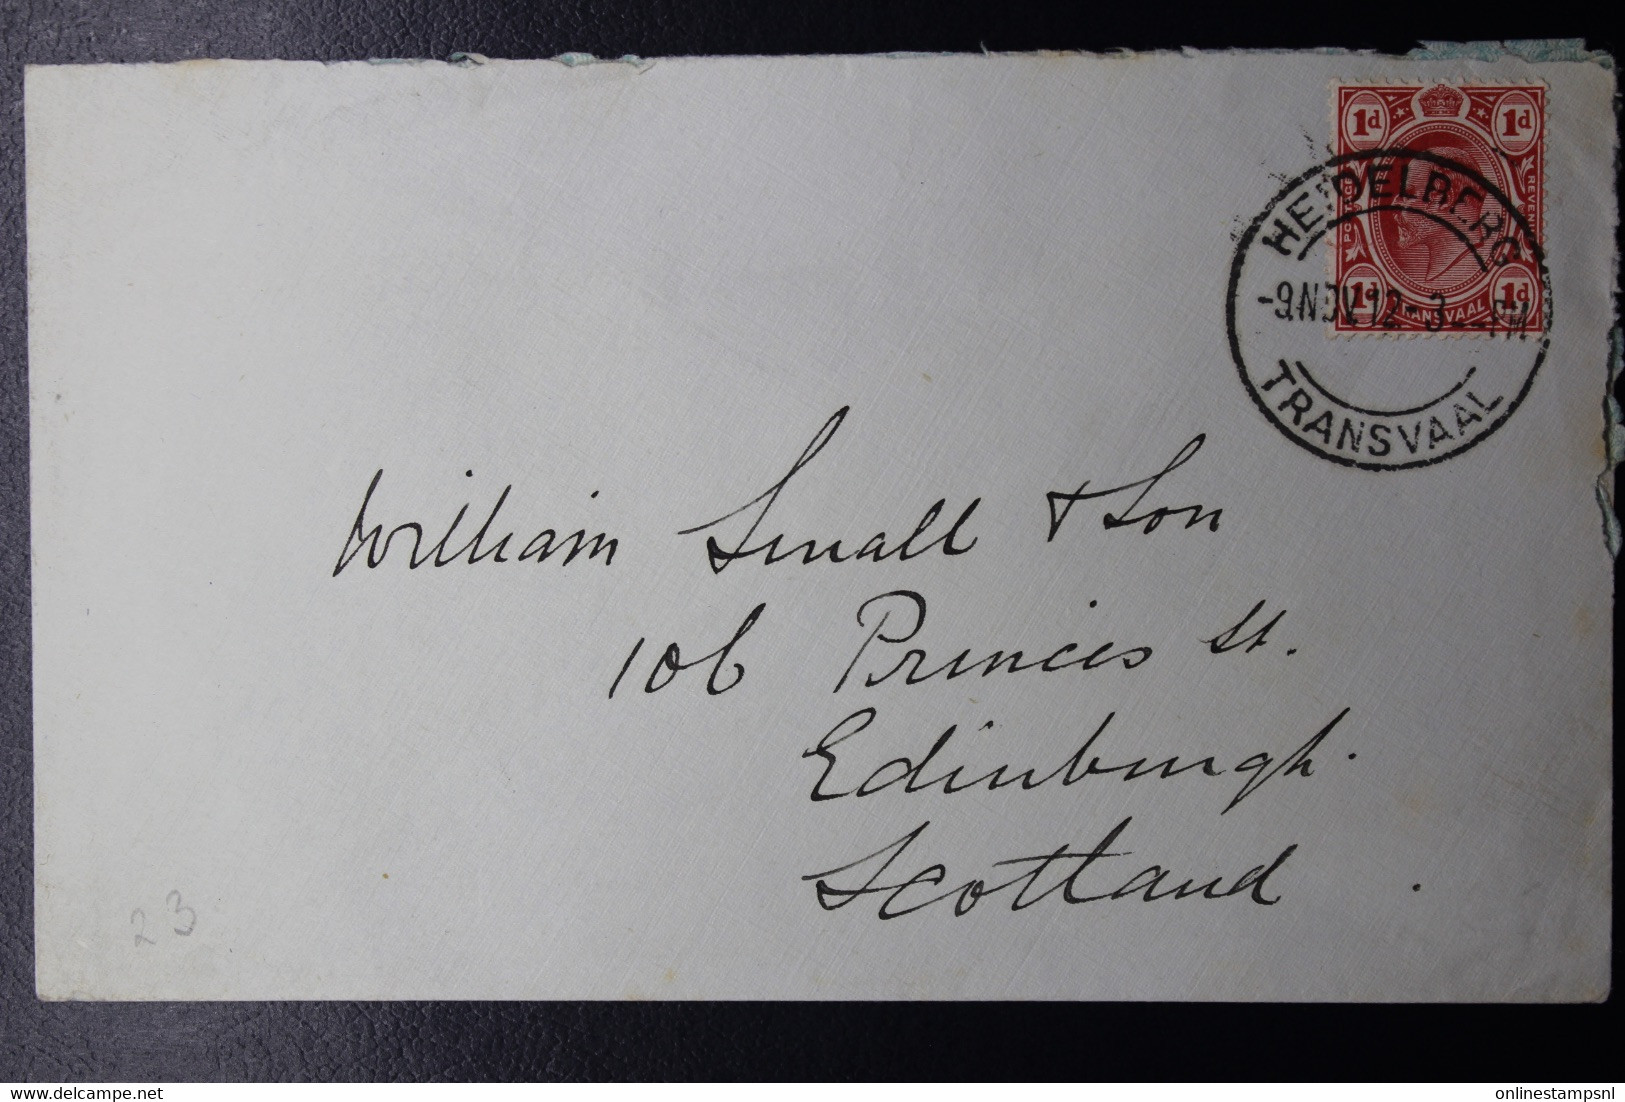 1d 1d
POSTAGE REVENUE
1d 1d
TRANSVAAL
HEIDELBERG
-9.NOV.12-3--PM
TRANSVAAL
William Small & Son
106 Princes St.
Edinburgh.
Scotland
23
delcampe.net
onlinestampsnl